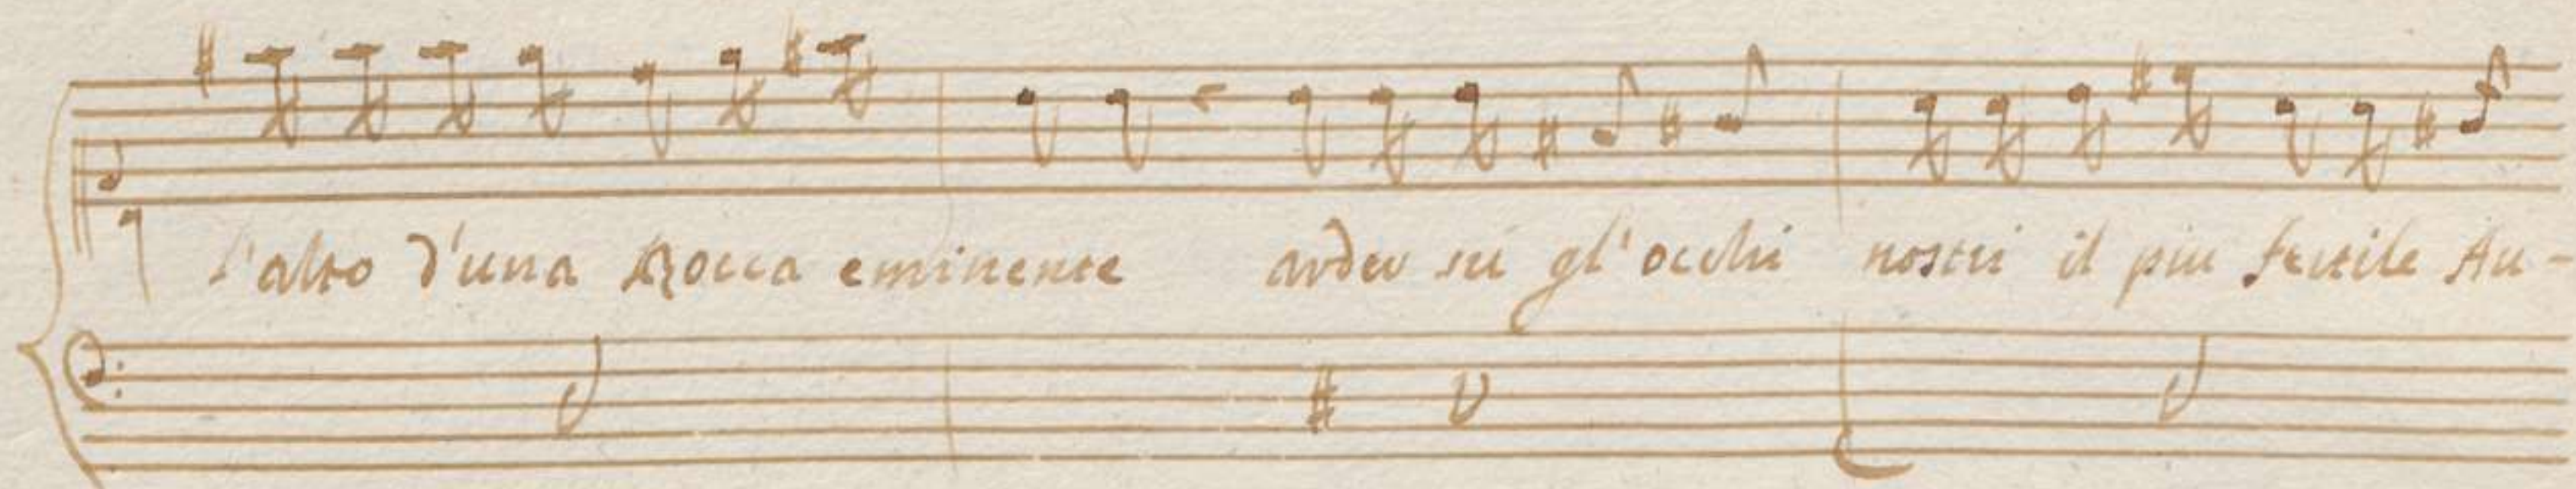 l'alto d'una Rocca eminente arder sù gl'occhi nostri il piu fertile Au-